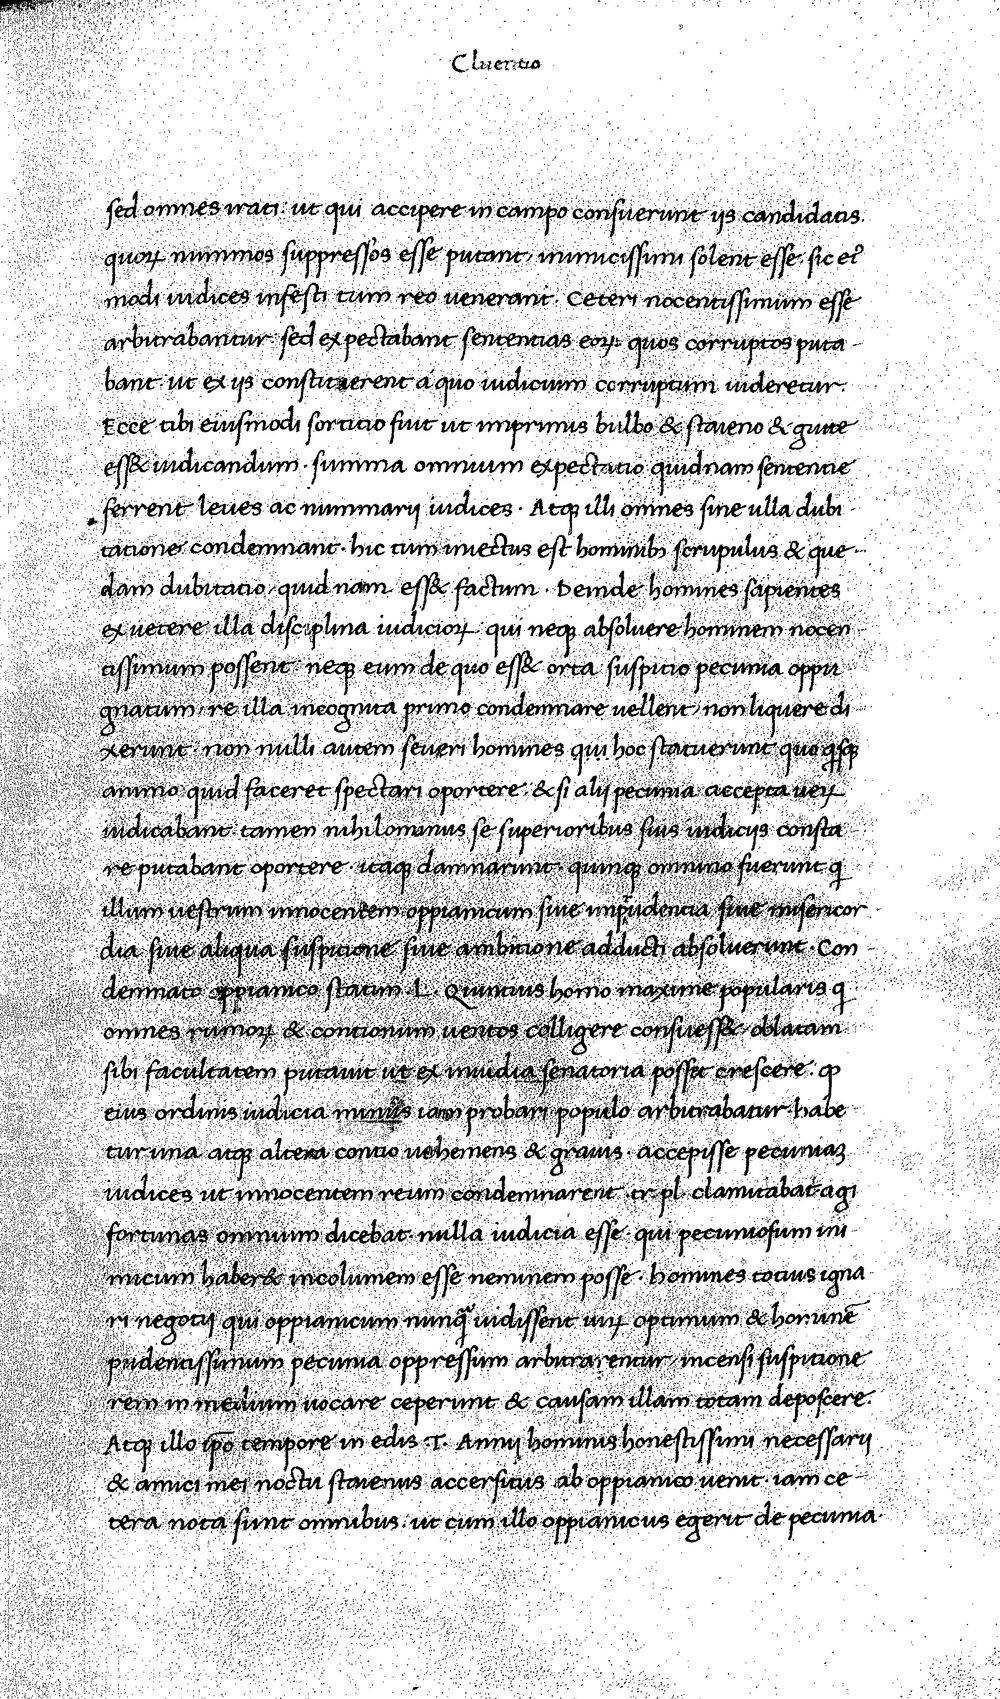 Cluentio
sed omnes irati: ut qui accipere in campo consuerunt iis candidatis.
quoꝝ nummos suppressos esse putant, inimicissimi solent esse. sic eiꝰ
modi iudices infesti tum reo venerant. Ceteri nocentissimum esse
arbitrabantur. sed expectabant sententias eoꝝ quos corruptos puta
bant. ut ex iis constituerent a quo iudicium corruptum videretur.
Ecce tibi eiusmodi sortitio fuit ut imprimis bulbo & staieno & gutte
ess& iudicandum. summa omnium expectatio quidnam sententie
ferrent leves ac nummarij iudices. Atqꝫ illi omnes sine ulla dubi
tatione condemnant. hic tum iniectus est hominibꝫ scrupulus & que
dam dubitatio, quid nam ess& factum. Deinde homines sapientes
ex vetere illa disciplina iudicioꝝ. qui neqꝫ absolvere hominem nocen
tissimum possent. neqꝫ eum de quo ess& orta suspitio pecunia oppu
gnatum, re illa incognita primo condemnare vellent, non liquere di
xerunt. non nulli autem severi homines qui hoc statuerunt quo qͥsqꝫ
animo quid faceret spectari oportere. & si alij pecunia accepta veꝝ
iudicabant. tamen nihilominus se superioribus suis iudiciis consta
re putabant oportere. itaqꝫ damnarunt. quinqꝫ omnino fuerunt qͥ
illum vestrum innocentem oppianicum sive imprudentia sive misericor
dia sive aliqua suspitione sive ambitione adducti absolverunt. Con
demnato oppianico statim .L. Quintius homo maxime popularis qͥ
omnes rumoꝝ & contionum ventos colligere consuess&, oblatam
sibi facultatem putavit ut ex invidia senatoria posset crescere. ꝙ
eius ordinis iudicia minus iam probari populo arbitrabatur. habe
tur una atqꝫ altera contio vehemens & gravis. accepisse pecuniaꝫ
iudices ut innocentem reum condemnarent. tr. pl. clamitabat agi
fortunas omnium dicebat. nulla iudicia esse. qui pecuniosum ini
micum haber& incolumem esse neminem posse. homines totius igna
ri negotij qui oppianicum nunqᷓ vidissent viꝝ optimum & hominē
pudentissimum pecunia oppressum arbitrarentur, incensi suspitione
rem in medium vocare ceperunt & causam illam totam deposcere.
Atqꝫ illo ip̄o tempore in edis .T. Annij hominis honestissimi necessarij
& amici mei noctu staienus accersitus ab oppianico venit. iam ce
tera nota sunt omnibus. ut cum illo oppianicus egerit de pecunia.